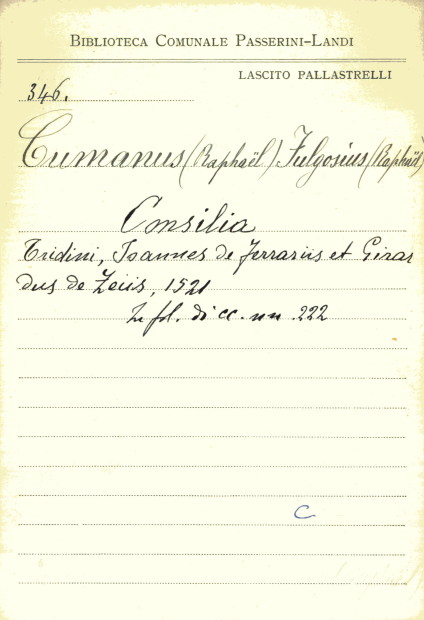 BIBLIOTECA COMUNALE PASSERINI-LANDI
LASCITO PALLASTRELLI
346.
Cumanus (Raphaël) Fulgosius (Raphaël)
Consilia
Tridini, Joannes de Ferrariis et Girar
dus de Zeiis, 1521
In fol. di cc. nn. 222
C